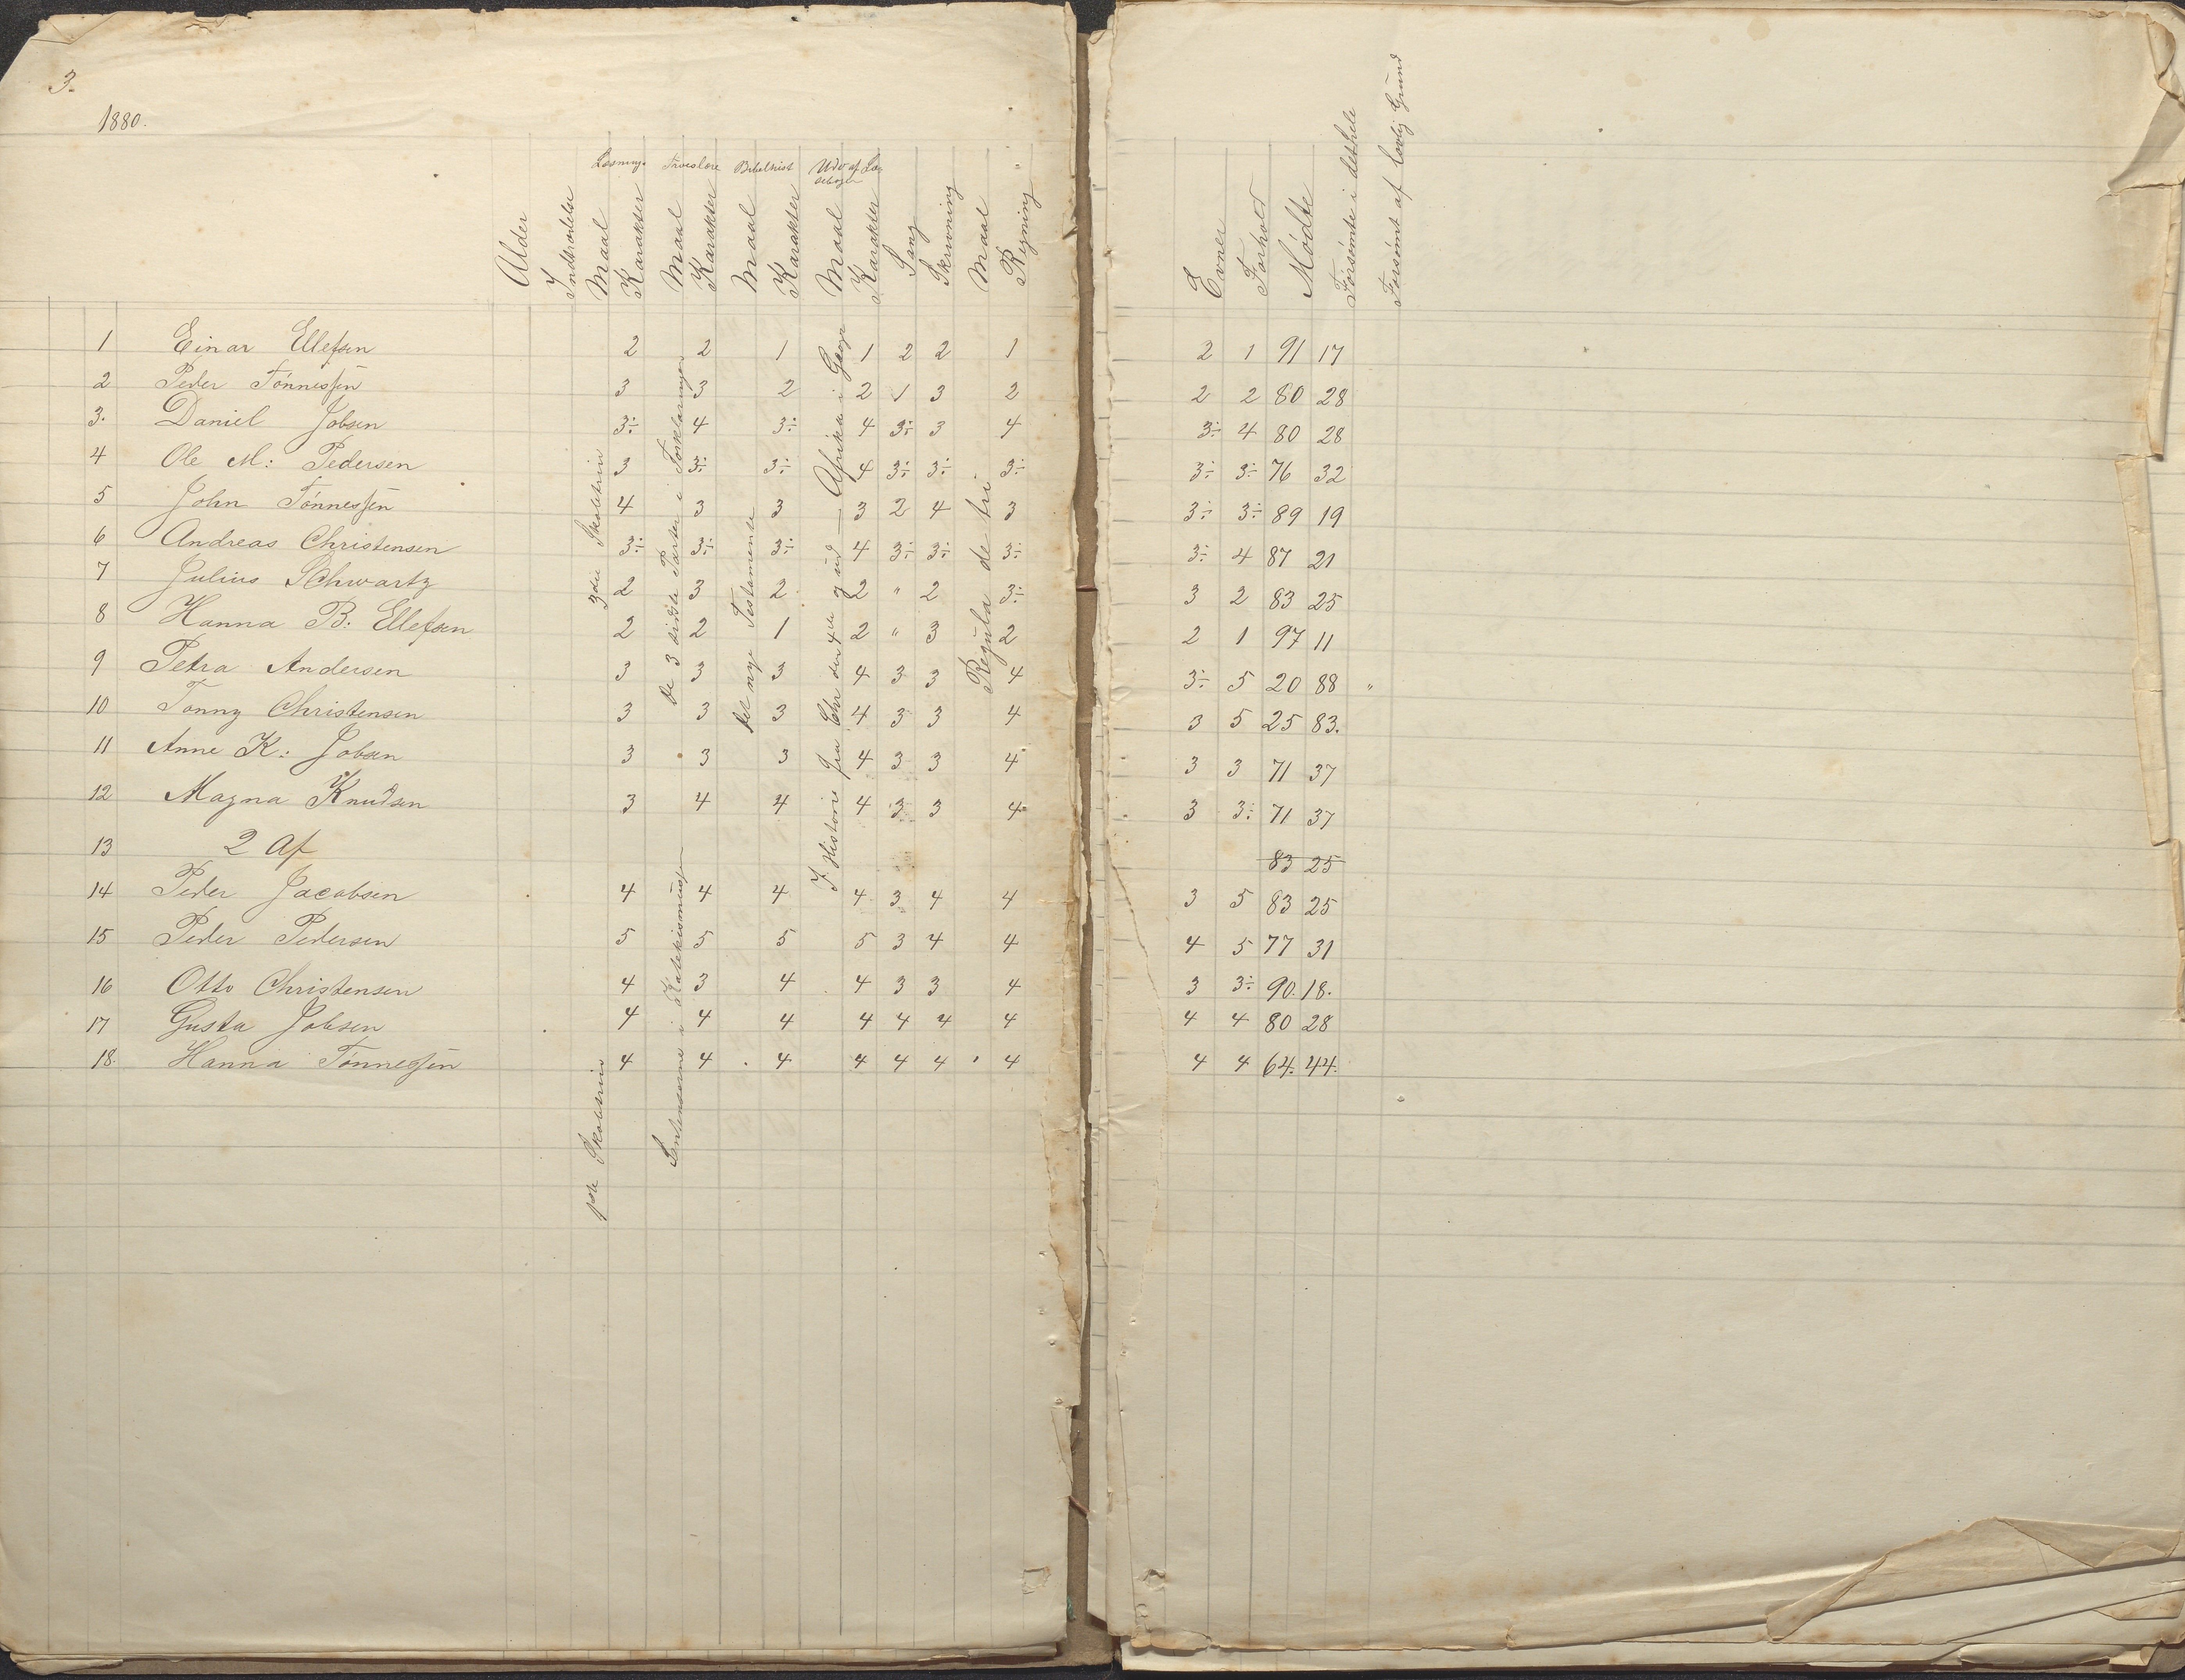 3.
1880.
Læsning Troeslære Bibelhist Udv af Læsebogen
Alder Indtrædelse Maal Karakter Maal Karakter Maal Karakter Maal Karakter Sang Skrivning Maal Regning Evner Forhold Mödte Forsömte i dethele Forsömt af lovlig Grund
1 Einar Ellefsen 2 2 1 1 2 2 1 2 1 91 17
2 Peder Tönnessen 3 3 2 2 1 3 2 2 2 80 28
3. Daniel Jobsen 3÷ 4 3÷ 4 3÷ 3 4 3÷ 4 80 28
4 Ole M: Pedersen 3 3÷ 3÷ 4 3÷ 3÷ 3÷ 3÷ 3÷ 76 32
5 John Tönnessen 4 3 3 3 2 4 3 3÷ 3÷ 89 19
6 Andreas Christensen 3÷ 3÷ 3÷ 4 3÷ 3÷ 3÷ 3÷ 4 87 21
7 Julius SChwartz 2 3 2 2 " 2 3÷ 3 2 83 25
8 Hanna B: Ellefsen 2 2 1 2 " 3 2 2 1 97 11
9 Petra Andersen 3 3 3 4 3 3 4 3÷ 5 20 88 "
10 Tonny Christensen 3 3 3 4 3 3 4 3 5 25 83.
11 Anne K: Jobsen 3 3 3 4 3 3 4 3 3 71 37
12 Magna Knudsen 3 4 4 4 3 3 4 3 3÷ 71 37
13 2 Af 83 25
14 Peder Jacobsen 4 4 4 4 3 4 4 3 5 83 25
15 Peder Pedersen 5 5 5 5 3 4 4 4 5 77 31
16 Otto Christensen 4 3 4 4 3 3 4 3 3÷ 90. 18.
17 Gusta Jobsen 4 4 4 4 4 4 4 4 4 80 28
18. Hanna Tönnessen 4 4 4 4 4 4 4 4 4 64. 44.
3die Skoletrin
De 3 sidste Parter i Forklaringen
Det nye Testamente
I Historie fra Chr den 4de og ud — Afrika i Geogr
Regula de tri
1ste Skoletrin
Sentenserne i Katekismus